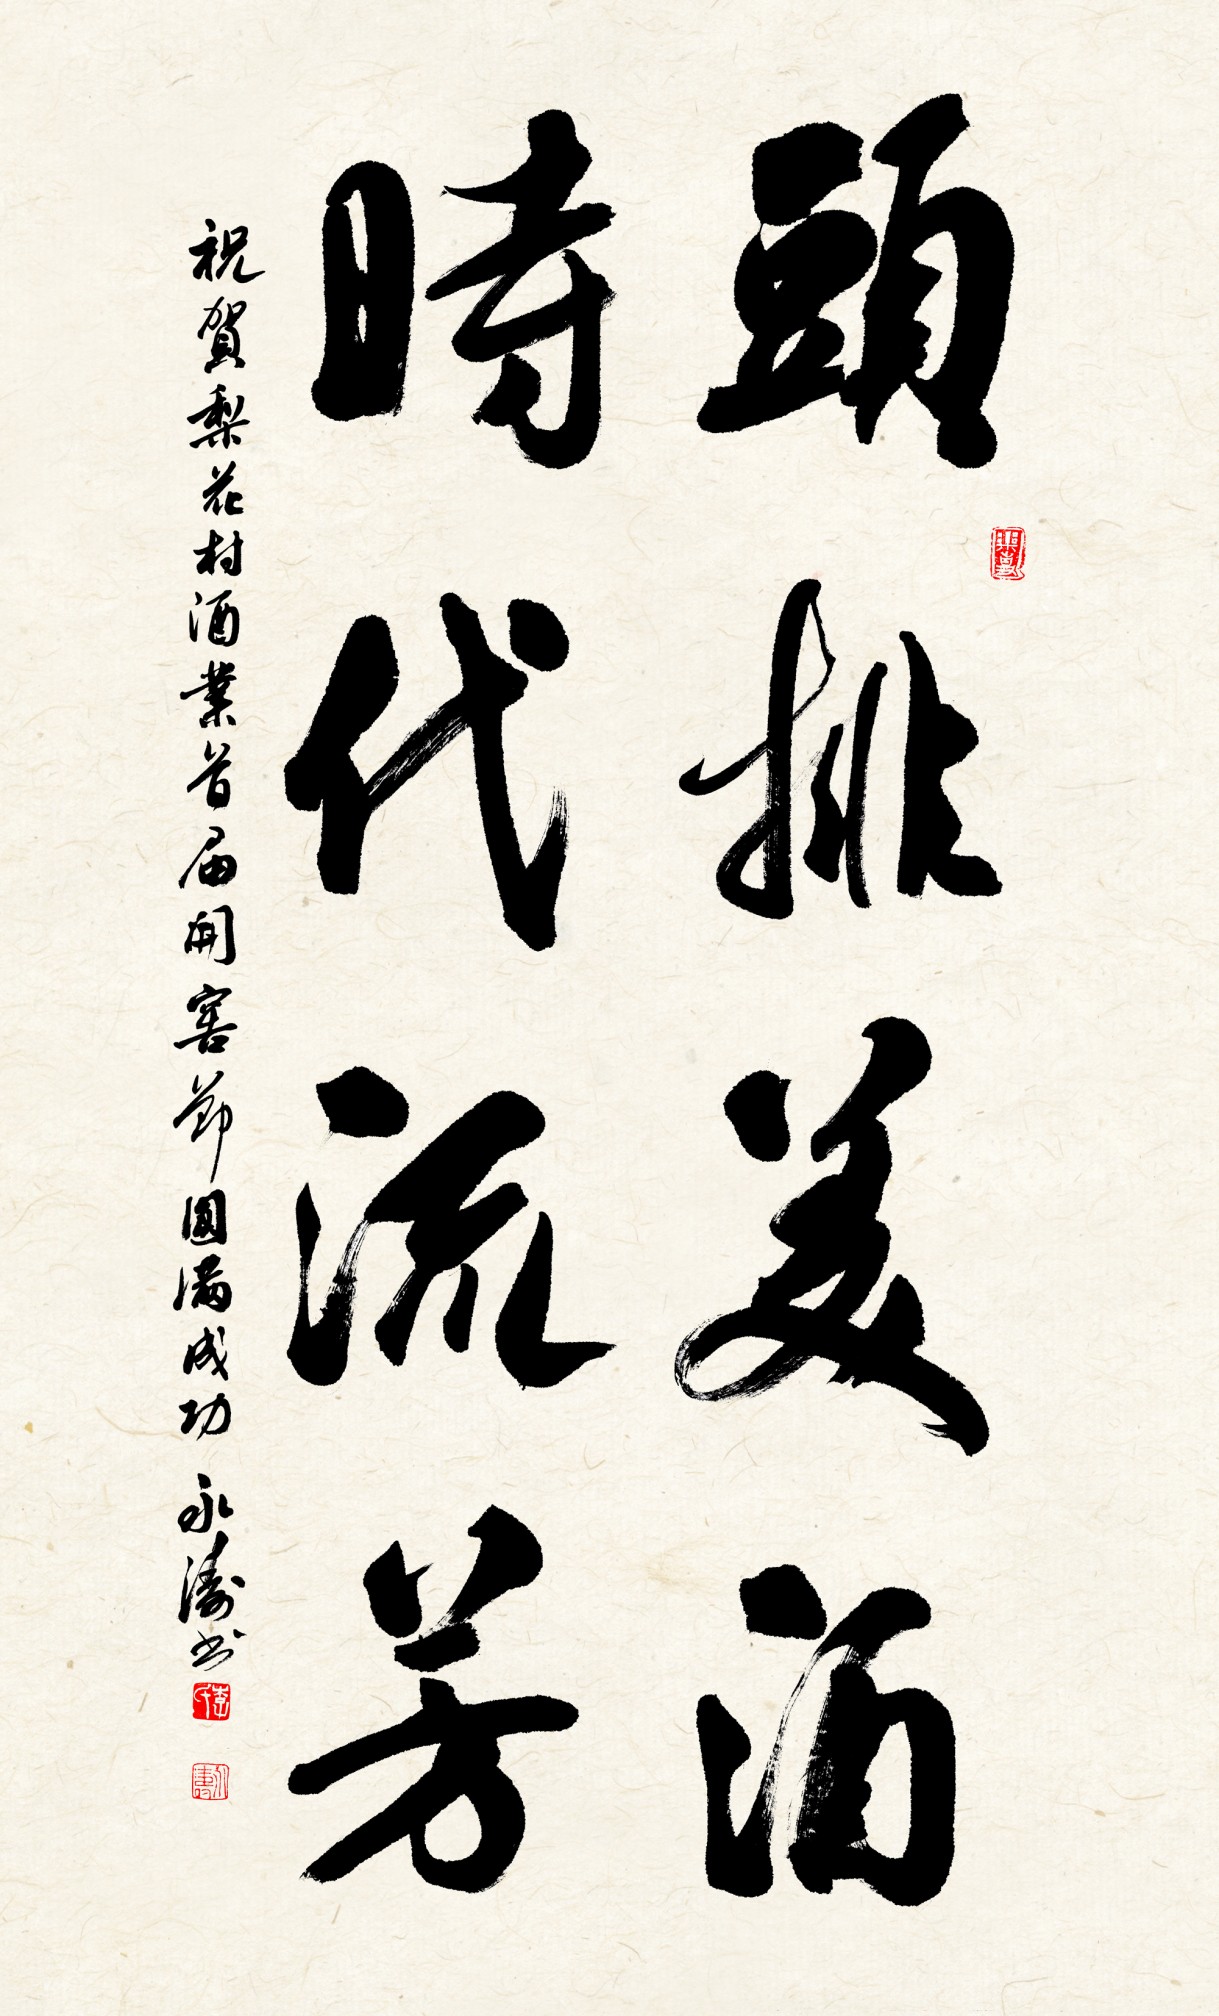 頭排美酒
時代流芳
祝賀梨花村酒業首届開窖節圓滿成功 永濤书